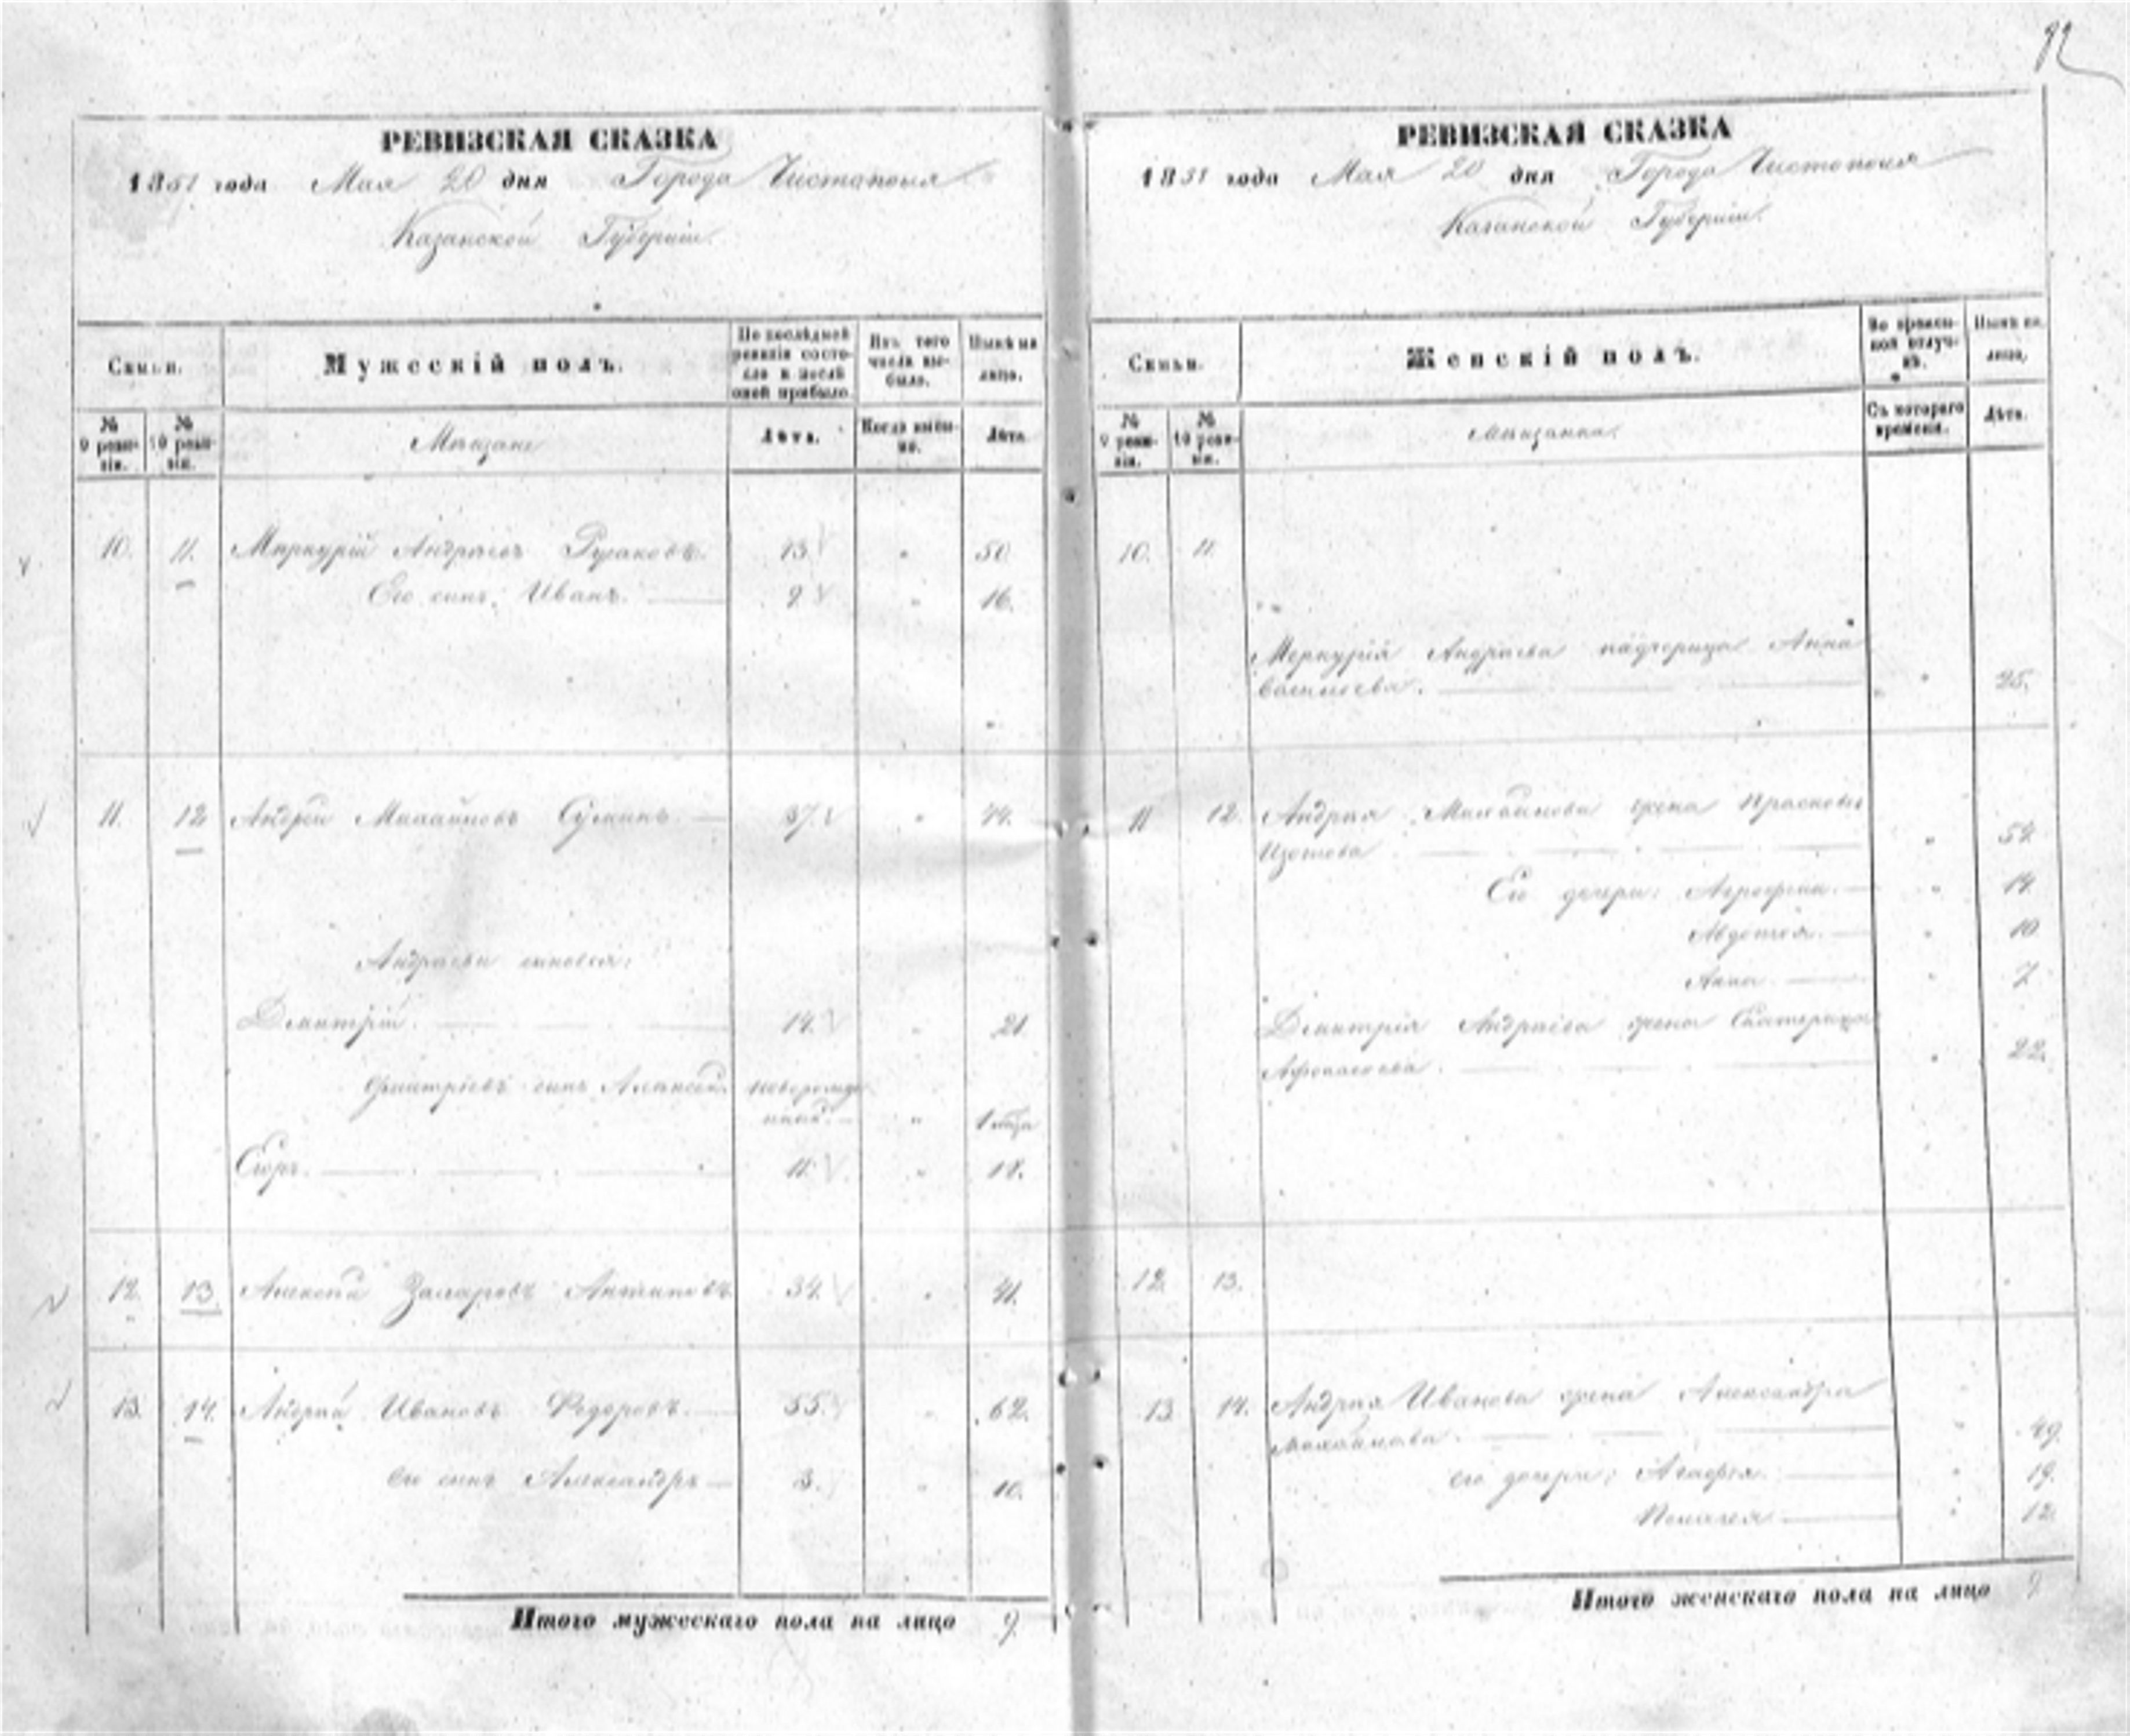 92
РЕВИЗСКАЯ СКАЗКА
1858 года Мая 20 дня Города Чистополя
Казанской Губернии.
Семьи.
Мужескій полъ.
По послѣдней ревизіи состояло и послѣ оной прибыло.
Изъ того числа выбыло.
Нынѣ на лицо.
№ 9 ревизіи.
№ 10 ревизіи.
Мѣщане
Лѣта.
Когда именно.
Лѣта.
10. 11. Меркурій Андреевъ Русаковъ. 13. " 50.
Его сынъ: Иванъ. 9 " 16.
11. 12 Андрей Михайловъ 37. " 44.
Андреевы сыновья:
Дмитрій. 14. " 21
Дмитріевъ сынъ Алексей новорожденный. " 1 мѣсца
Егоръ. 11. " 18.
12. 13. Алексѣй Захаровъ Антиповъ 34. " 41.
13. 14. Андрей Ивановъ Федоровъ. 55. " 62.
Его сынъ Александръ 3. " 10.
Итого мужескаго пола на лицо 9.
РЕВИЗСКАЯ СКАЗКА
1858 года Мая 20 дня Города Чистополя
Казанской Губерніи.
Семьи.
Женскій полъ.
Во временной отлучкѣ.
Нынѣ на лицо.
№ 9 ревизіи.
№ 10 ревизіи.
Мѣщанки.
Съ котораго времени.
Лѣта.
10. 11.
Меркурія Андреева падчерица Анна
Васильева. " 25.
11 12. Андрея Михайлова жена Прасковья
Изотова " 54
Его дочери: Аграфена. " 14.
Авдотья. " 10
Анна " 7
Дмитрія Андреева жена Екатерина
Афонасьева. " 22.
12. 13.
13 14. Андрея Иванова жена Александра
Михайлова. " 49.
его дочери: Агафья. " 19.
Пелагея " 12.
Итого женскаго пола на лицо 9